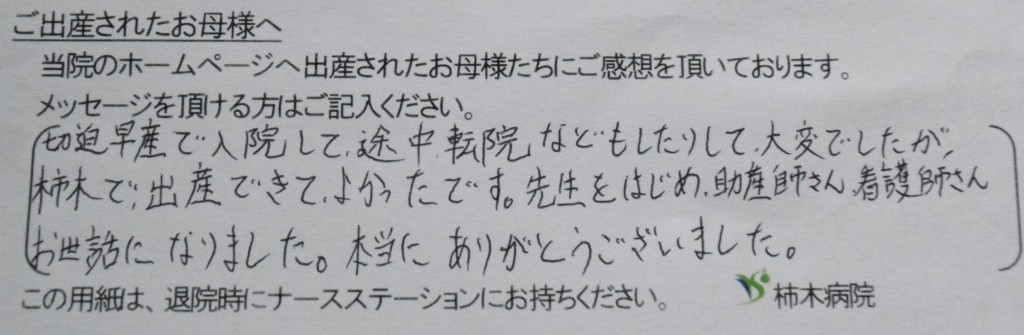 ご出産されたお母様へ
当院のホームページへ出産されたお母様たちにご感想を頂いております。
メッセージを頂ける方はご記入ください。
切迫早産で入院して、途中、転院などもしたりして、大変でしたが、
柿木で、出産できて、よかったです。先生をはじめ、助産師さん、看護師さん
お世話になりました。本当にありがとうございました。
この用紙は、退院時にナースステーションにお持ちください。 柿木病院